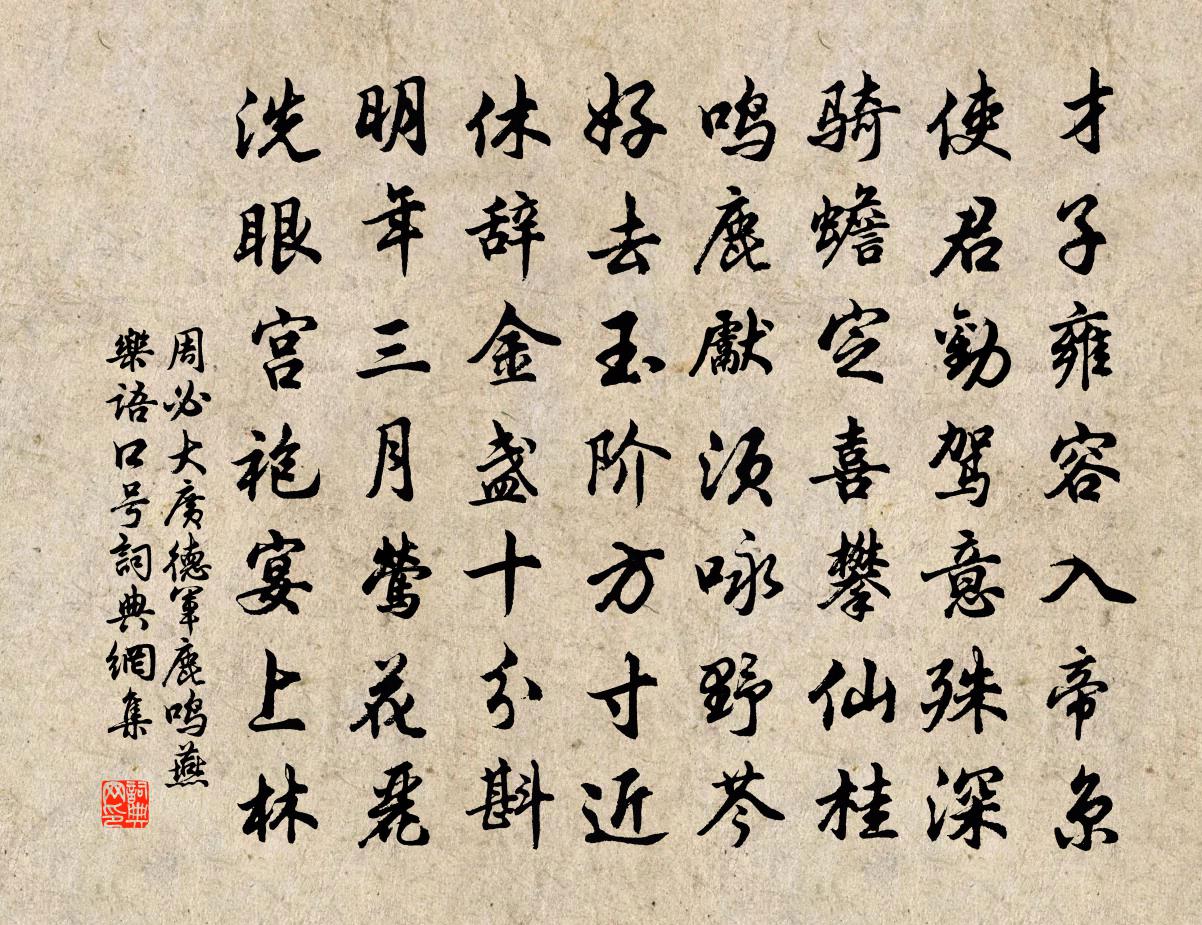 才子雍容入帝京
使君勸駕意殊深
骑蟾定喜攀仙桂
鸣鹿獻须咏野芩
好去玉阶方寸近
休辞金盏十分斟
明年三月莺花麗
洗眼宫袍宴上林
周必大廣德軍鹿鸣燕
樂语口号詞典網集
詞典网印